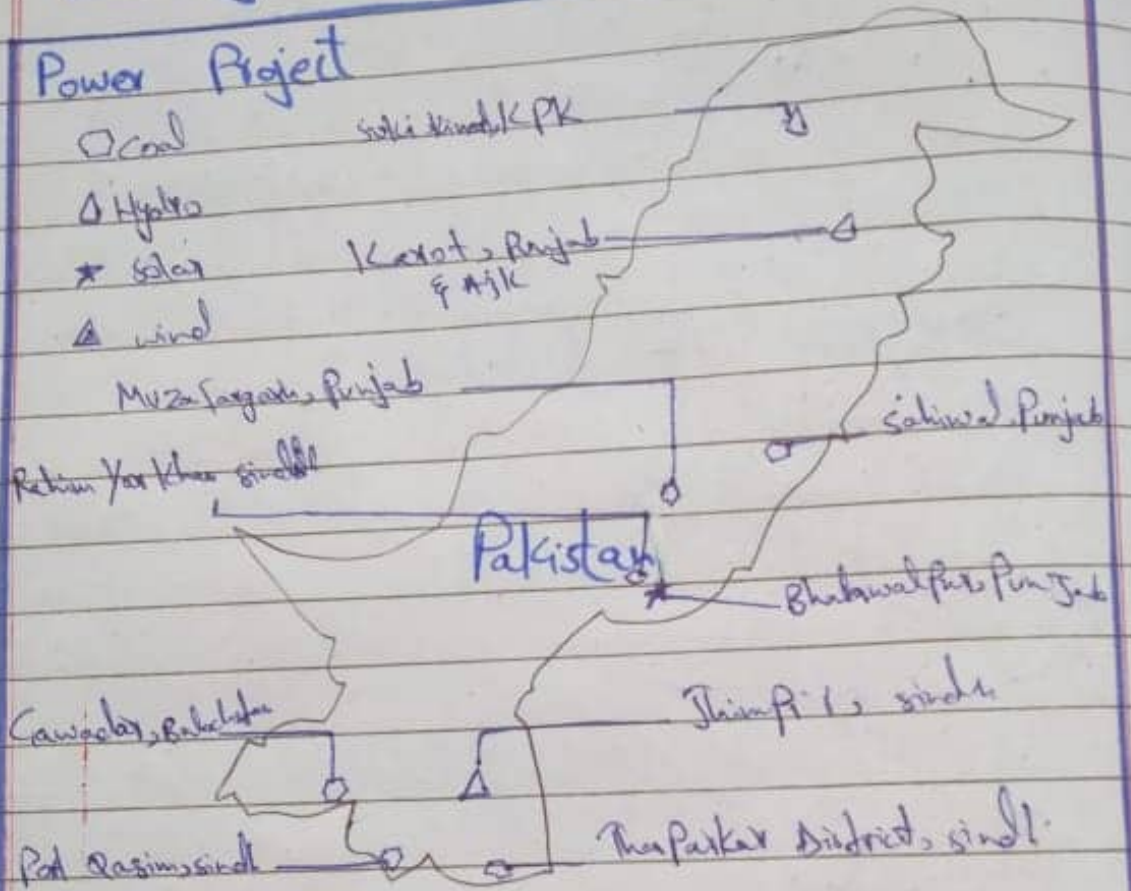 Power Project
Coal
Suki Kinari, KPK
Hydro
Karot, Punjab
& AJK
solar
wind
Muzafargarh, Punjab
Sahiwal, Punjab
Rahim Yar Khan sindh
Pakistan
Bhahawalpur, Punjab
Gawadar, Balochistan
Jhimpir, sindh
Port Qasim, sindh
Tharparkar District, sindh